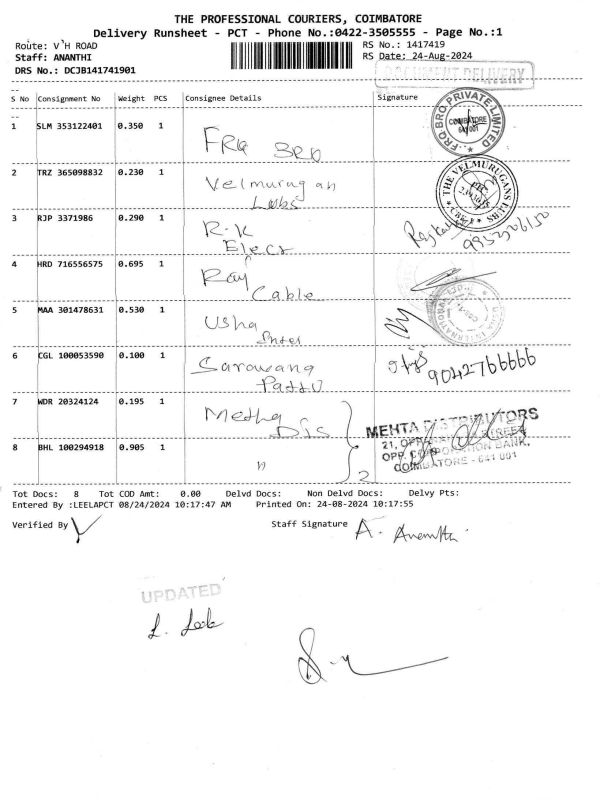 THE PROFESSIONAL COURIERS, COIMBATORE
Delivery Runsheet - PCT - Phone No.:0422-3505555 - Page No.:1
Route: V'H ROAD RS No.: 1417419
Staff: ANANTHI RS Date: 24-Aug-2024
DRS No.: DCJB141741901
DOCUMENT DELIVERY
S No Consignment No Weight PCS Consignee Details Signature
1 SLM 353122401 0.350 1 FRQ BRO
FRQ-BRO PRIVATE LIMITED COIMBATORE 641 001
2 TRZ 365098832 0.230 1 Velmurugan
Labs
THE VELMURUGANS LUBS
3 RJP 3371986 0.290 1 R.K
Elecs
4 HRD 716556575 0.695 1 Raj
Cable
5 MAA 301478631 0.530 1 Usha
Inter
6 CGL 100053590 0.100 1 Saravana 9042766666
Pattu
7 WDR 20324124 0.195 1 Metha
Dis
MEHTA DISTRIBUTORS
21, OPP.
OPP. CORPORATION BANK,
COIMBATORE - 641 001
8 BHL 100294918 0.905 1 n 2
Tot Docs: 8 Tot COD Amt: 0.00 Delvd Docs: Non Delvd Docs: Delvy Pts:
Entered By :LEELAPCT 08/24/2024 10:17:47 AM Printed On: 24-08-2024 10:17:55
Verified By Staff Signature A. Ananthi
UPDATED
L. Leela